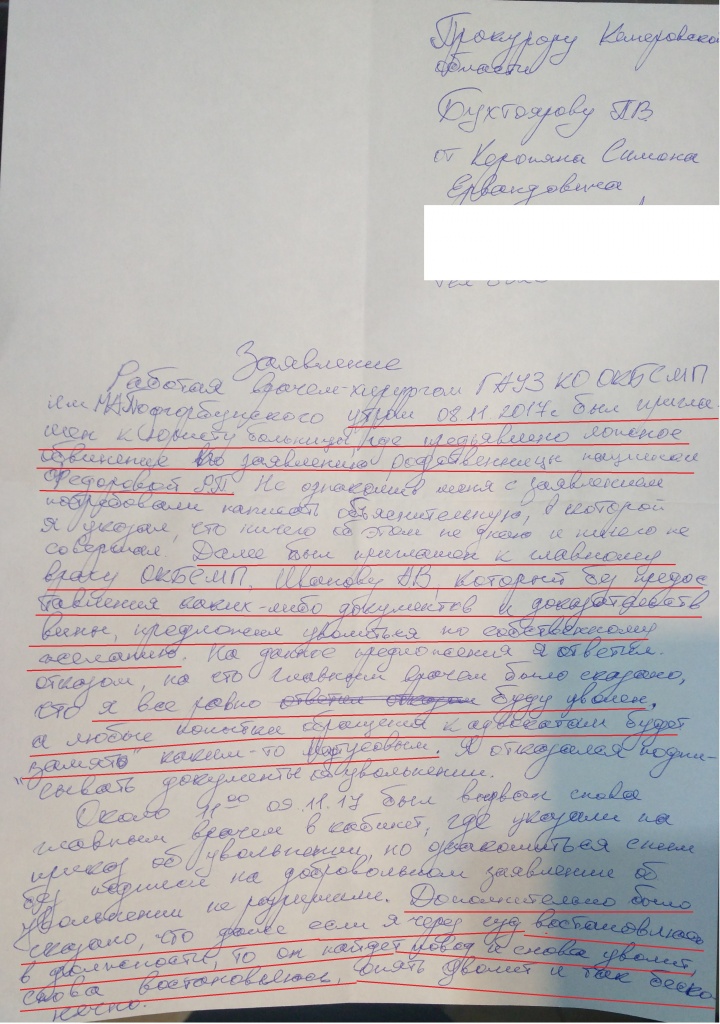 Прокурору Кемеровско
области
Бухтоярову П.В.
от Коропяна Симона
Ервандовича
Заявление
Работая врачем-хирургом ГАУЗ КО ОКБСМП
им М.А.Подгорбунского утром 08.11.2017г был пригла-
шен к юристу больницы, где предъявлено ложное
обвинение по заявлению родственницы пациентки
Федоровой Я.П. Не ознакомив меня с заявлением
потребовали написать объяснительную, в которой
я указал, что ничего об этом не знаю и ничего не
совершал. Далее был приглашен к главному
врачу ОКБСМП, Иванову А.В, который без предос
тавления каких-либо документов и доказательств
вины, предложил уволиться по собственному
желанию. На данное предложения я ответил
отказом, на что главным врачем было сказано,
что я все равно ответил отказом буду уволен,
а любые попытки обращения к адвокатам будет
"замято" каким-то Матусовым. Я отказался подпи-
сывать документы об увольнении.
Около 11⁰⁰ 09.11.17 был вызван снова
главным врачем в кабинет, где указали на
приказ об увольнении, но ознакомиться с ним
без подписи на добровольном заявлении об
увольнении не разрешили. Дополнительно было
сказано, что даже если я через суд востановлюсь
в должности, то он найдет повод и снова уволит,
снова востановлюсь, опять уволит и так беско
нечно.